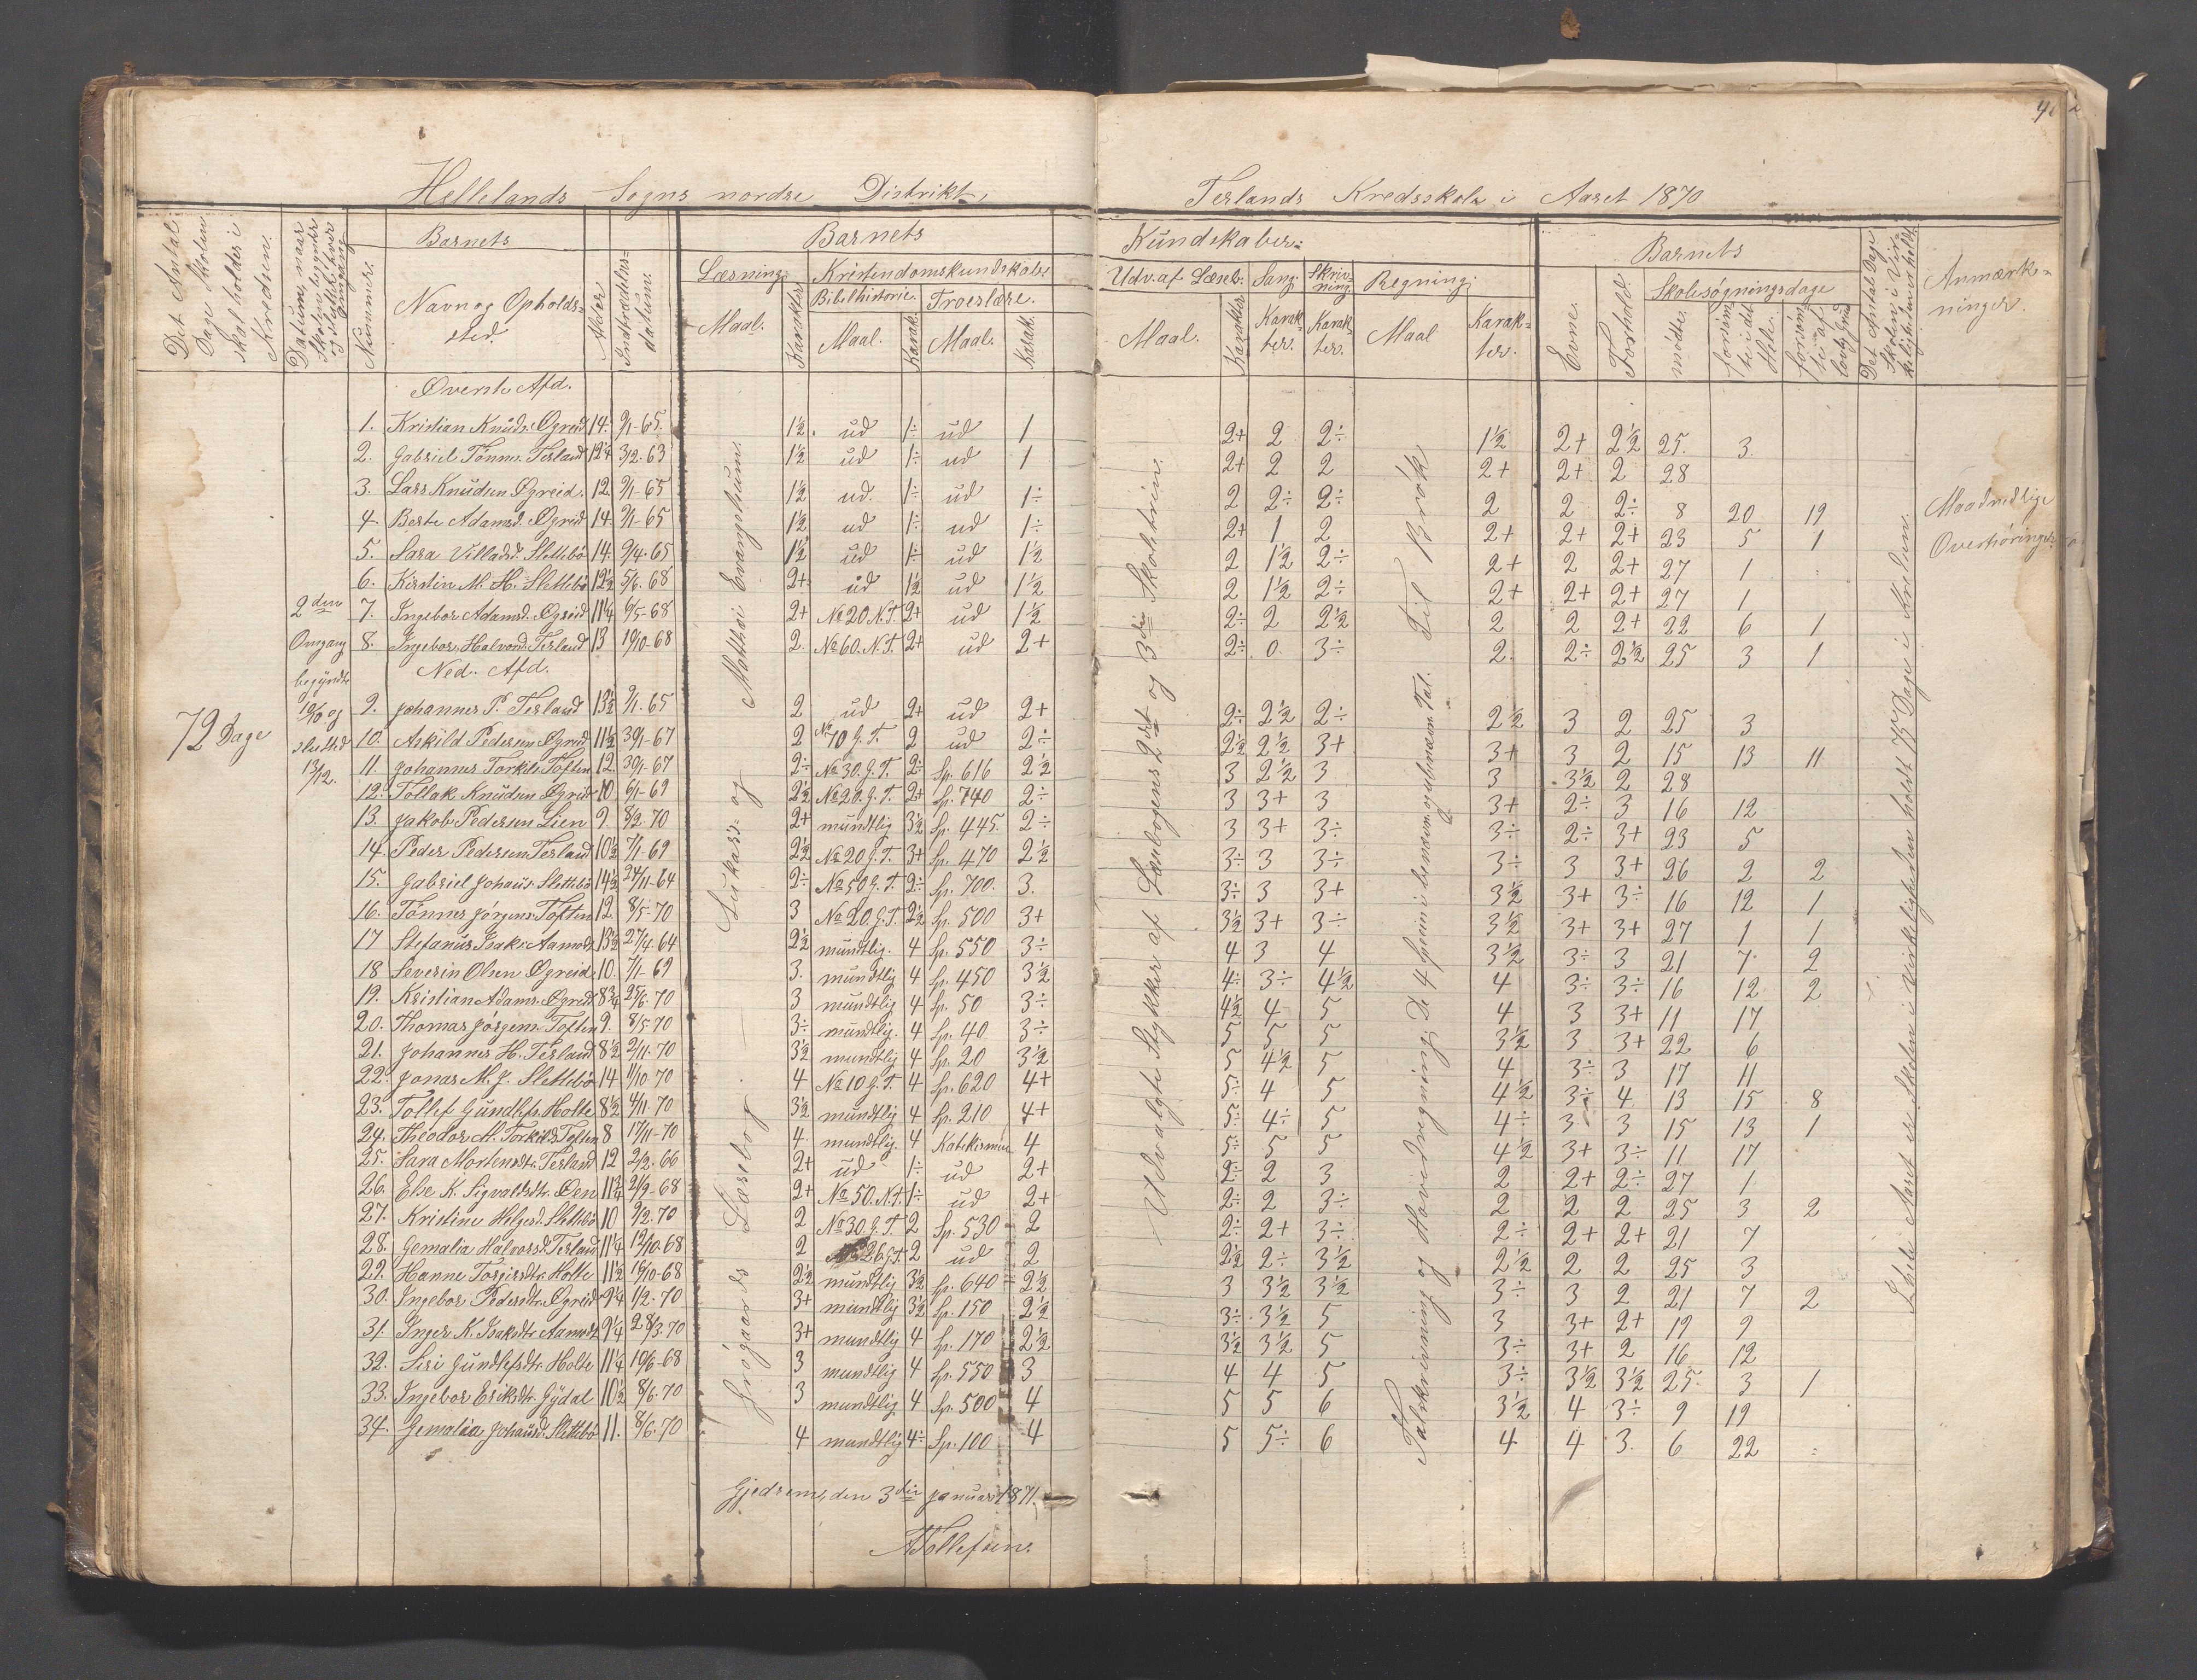 Hellelands Sogns nordre Distrikt,
Terlands Kredsskole i Aaret 1870
Det Antal Dage Skolen skal holdes i Kredsen.
Datum, naar Skolen begynder og slutter hver Omgang
Nummer.
Barnets
Navn og Opholdssted.
Alder
Indtrædelsesdatum.
Barnets
Læsning.
Maal.
Karakter
Kristendomskundskab:
Bibelhistorie.
Maal.
Karak.
Troeslære.
Maal.
Karak.
Kundskaber:
Udv. af Læseb:
Maal.
Karakter
Sang.
Karakter.
Skrivning
Karakter.
Regning.
Maal
Karakter.
Barnets
Evne.
Forhold.
Skolesøgningsdage
mødte.
forsømte i det Hele.
forsømte af lovlig Grund
Det Antal Dage Skolen i Virkeligheden er holdt
Anmærkninger.
Øverste Afd.
1. Kristian Knuds. Øgreid 14. 9/1-65. 1½. ud 1÷ ud 1 2+ 2 2÷ 1½ 2+ 2½ 25. 3.
2. Gabriel Tønnes. Terland 12¼ 3/2-63 1½ ud 1÷ ud 1 2+ 2 2 2+ 2+ 2 28
3. Lars Knudsen Øgreid. 12. 9/1-65 1½ ud. 1÷ ud 1÷ 2 2÷ 2÷ 2 2 2÷ 8 20 19
4. Berte Adamsd. Øgreid 14. 9/1-65 1½ ud 1÷ ud 1÷ 2+ 1 2 2+ 2+ 2+ 23 5 1
5. Sara Villadsd. Slettebø 14. 9/4-65 1½ ud 1÷ ud 1½ 2 1½ 2÷ 2+ 2 2+ 27 1
6. Kirstin M. H. Slettebø 12½ 5/6-68 2+ ud 1½ ud 1½ 2 1½ 2÷ 2+ 2+ 2+ 27 1
7. Ingebor Adamsd. Øgreid 11¼ 6/5-68 2+ No 20. N.T. 2+ ud 1½ 2÷ 2 2½ 2 2 2+ 22 6 1
8. Ingebor Halvord. Terland 13 19/10-68 2. No 60. N.T. 2+ ud 2+ 2÷ 0. 3÷ 2. 2÷ 2½ 25 3 1
Ned. Afd.
9. Johannes P. Terland 13½ 9/1-65 2 ud 2+ ud 2+ 2÷ 2½ 2÷ 2½ 3 2 25 3
10. Askild Pedersen Øgreid 11½ 30/1-67 2 No 10 G.T. 2 ud 2÷ 2½ 2½ 3+ 3+ 3 2 15 13 11
11. Johannes Torkils. Toften 12. 30/1-67 2÷ No 30. G.T. 2÷ Sp. 616 2½ 3 2½ 3 3 3½ 2 28
12. Tollak Knudsen Øgreid 10 6/1-69 2½ No 20. G.T. 2+ Sp. 740 2÷ 3 3+ 3 3+ 2÷ 3 16 12
13. Jakob Pedersen Lien 9. 8/2-70 2+ mundtlig 3½ Sp. 445. 2÷ 3 3+ 3÷ 3÷ 2÷ 3+ 23 5
14. Peder Pedersen Terland 10½ 7/1-69 2½ No 20 G.T. 3+ Sp. 470 2½ 3÷ 3 3÷ 3÷ 3 3+ 26 2 2
15. Gabriel Johaus. Slettebø 14½ 24/11-64 2÷ No 50 G.T. 2÷ Sp. 700. 3. 3÷ 3 3+ 3½ 3+ 3÷ 16 12 1
16. Tönnes Jörgens. Toften 12. 8/5-70 3 No 20. G.T. 2½ Sp. 500 3+ 3½ 3+ 3÷ 3½ 3+ 3+ 27 1 1
17 Stefanus Isaks. Aamodt 13½ 27/4-64 2½ mundtlig. 4 Sp. 550 3÷ 4 3 4 3½ 3÷ 3 21 7 2
18 Severin Olsen Øgreid 10. 7/1-69 3. mundtlig 4 Sp. 450 3½ 4÷ 3÷ 4½ 4 3÷ 3÷ 16 12 2
19. Kristian Adams. Øgreid 8¾ 25/6-70 3 mundtlig 4 Sp. 50 3÷ 4½ 4 5 4 3 3+ 11 17
20. Thomas Jörgens. Toften 9. 8/5-70 3÷ mundtlig. 4 Sp. 40 3÷ 5 5 5 3½ 3 3+ 22 6
21. Johannes H. Terland 8½ 2/11-70 3½ mundtlig 4 Sp. 20 3½ 5 4½ 5 4 3÷ 3 17 11
22. Jonas M. J. Slettebø 14 11/10-70 4 No 10 G.T. 4 Sp. 620 4+ 5÷ 4 5 4½ 3÷ 4 13 15 8
23. Tollef Gundlefs. Holte 8½ 4/11-70 3½ mundtlig 4 Sp. 210 4+ 5÷ 4÷ 5 4÷ 3 3 15 13 1
24. Theodor M. Torkilds. Toften 8 17/11-70 4. mundtlig. 4 Katekismus 4 5÷ 5 5 4½ 3+ 3÷ 11 17
25. Sara Mortensdtr. Terland 12 2/2-66 2+ ud 1÷ ud 2+ 2÷ 2 3 2 2+ 2÷ 27 1
26. Else K. Sigvaldsdtr. Øen 11¾ 2/9-68 2+ No 50. N.T. 1÷ ud 2+ 2÷ 2 3÷ 2 2 2 25 3 2
27. Kristine Helgesd. Slettebø 10 9/2-70 2 No 30 G.T. 2 Sp. 530 2 2÷ 2+ 3÷ 2÷ 2+ 2+ 21 7
28. Gemalia Halvorsd. Terland 11¼ 12/10-68 2 26 G.T. 2 ud 2 2½ 2÷ 3½ 2½ 2 2 25 3
29. Hanne Torgersdtr. Holte 11½ 16/10-68 2½ mundtlig 3½ Sp. 640 2½ 3 3½ 3½ 3÷ 3 2 21 7 2
30. Ingebor Pedersdtr. Øgreid 9¼ 1/2-70 3+ mundtlig 3½ Sp. 150 2½ 3÷ 3½ 5 3 3+ 2+ 19 9
31. Inger K. Isaksdtr. Aamodt 9¼ 28/3-70 3+ mundtlig 4 Sp. 170 2½ 3½ 3½ 5 3÷ 3+ 2 16 12
32. Siri Gundlefsdtr. Holte 11¼ 10/6-68 3 mundtlig 4 Sp. 550 3 4 4 5 3÷ 3½ 3½ 25 3 1
33. Ingebor Eriksdtr. Gydal 10½ 8/6-70 3 mundtlig 4 Sp. 500 4 5 5 6 3½ 4 3÷ 9 19
34. Gemalia Johausd. Slettebø 11. 8/6-70 4 mundtlig 4÷ Sp. 100 4 5 5÷ 6 4 4 3. 6 22
72 Dage
2den
Omgang
begyndte
19/10 og
slutted
13/12.
Matthæi Evangelium.
Lukas's og
Grögaards Læsebog
Udvalgte Stykker af Læsebogens 2det og 3die Skoletrin.
Til Brök
Talskrivning og Hovedregning; De 4 Spec. i benævnte og ubenævnte Tal.
I hele Aaret er Skolen i Virkeligheden holdt 75 Dage i Kredsen.
Maanedlige
Overhøringer
Gjedrem, den 3die Januar 1871.
A Tollefsen.